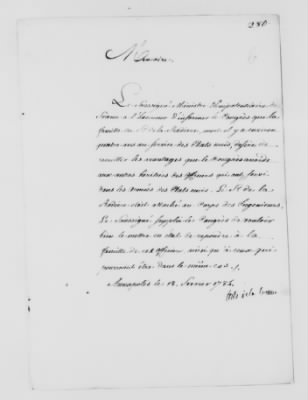 280.
Mémoire
Le Soussigné Ministre Plénipotentiaire de
France a l'honneur d'informer le Congrès que la
famille du Sr. de la Radiere, mort il y a environ
quatre ans au service des Etats unis, desire de
recueillir les avantages que le Congrès a accordés
aux autres heritiers des officiers qui ont servi
dans les armées des Etats unis. Le Sr. de la
Radiere étoit attaché au Corps des Ingenieurs.
Le Soussigné supplie le Congrès de vouloir
bien le mettre en etat de repondre à la
famille de cet officier ainsi qu'à ceux qui
pourroient être dans le même cas.
Annapolis le 18. Fevrier 1784.
de la Luzerne